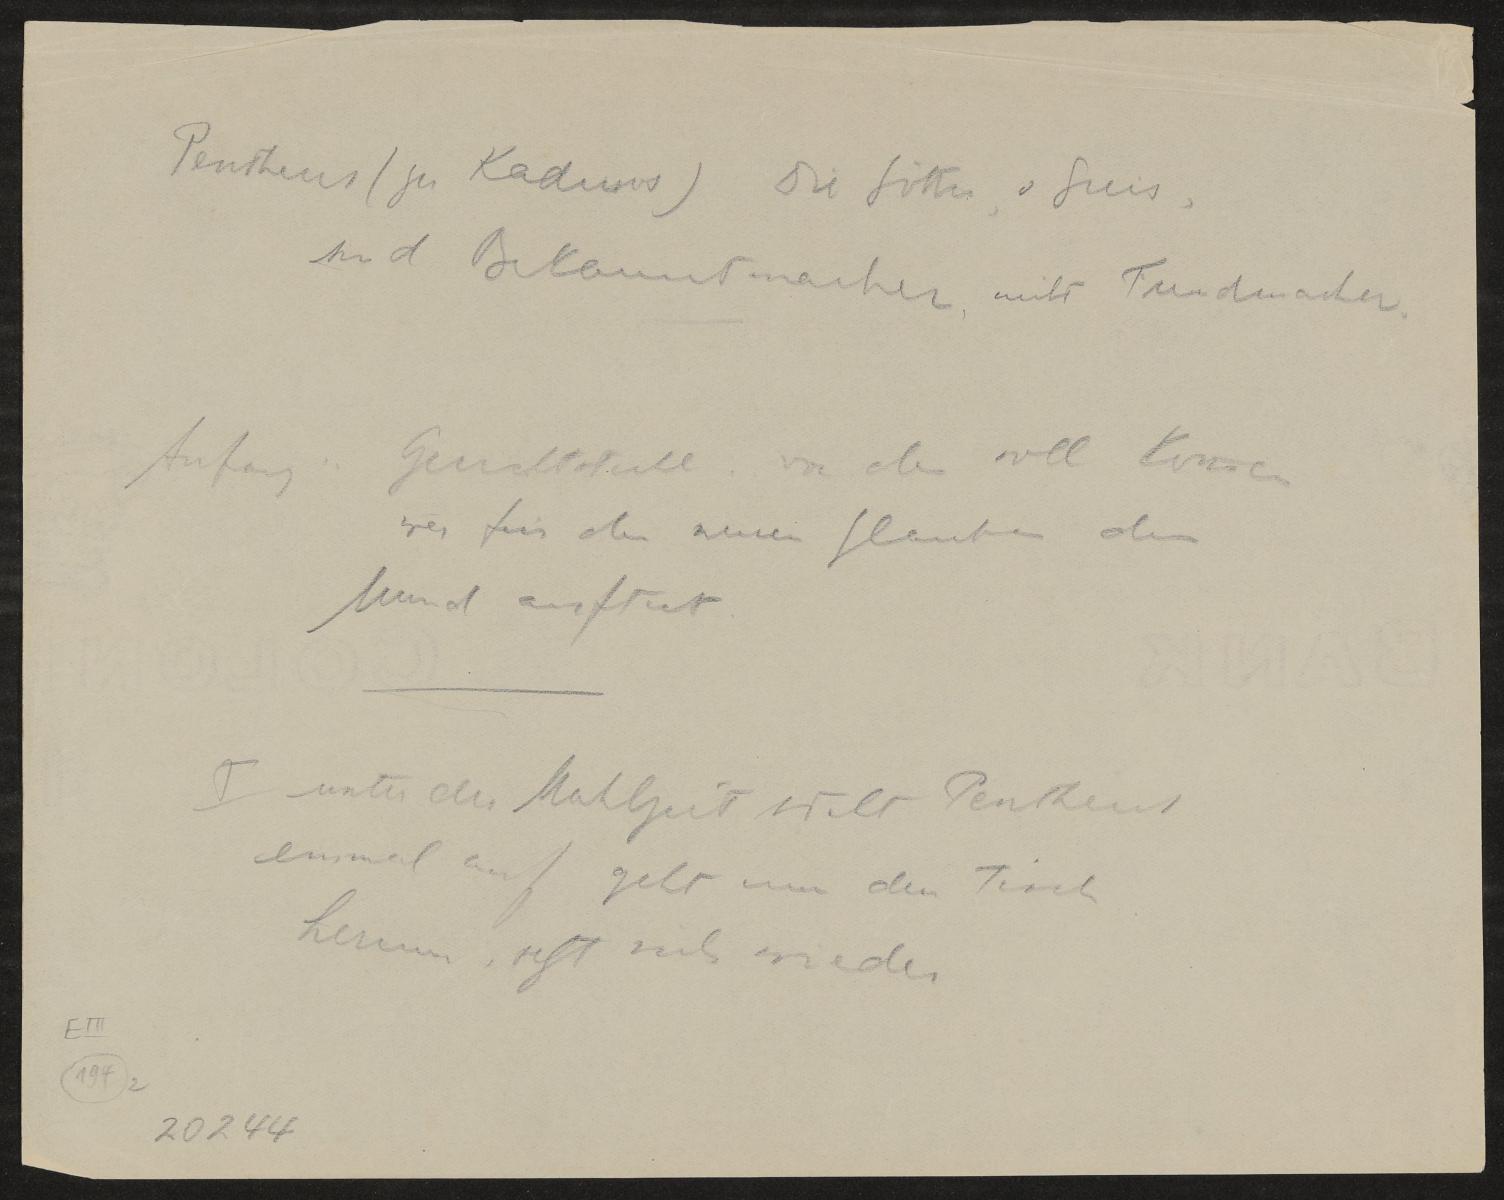 Pentheus (zu Kadmos) Die Götter, o Greis,
sind Bekanntmacher, nicht Fremdmacher.
Anfang: von der soll Kommen
wer für den neuen Glauben den
Mund auftut.
I unter der Mahlzeit steht Pentheus
einmal auf geht um den Tisch
herum, setzt sich wieder
COLON BANK
EIII
194 2
20244